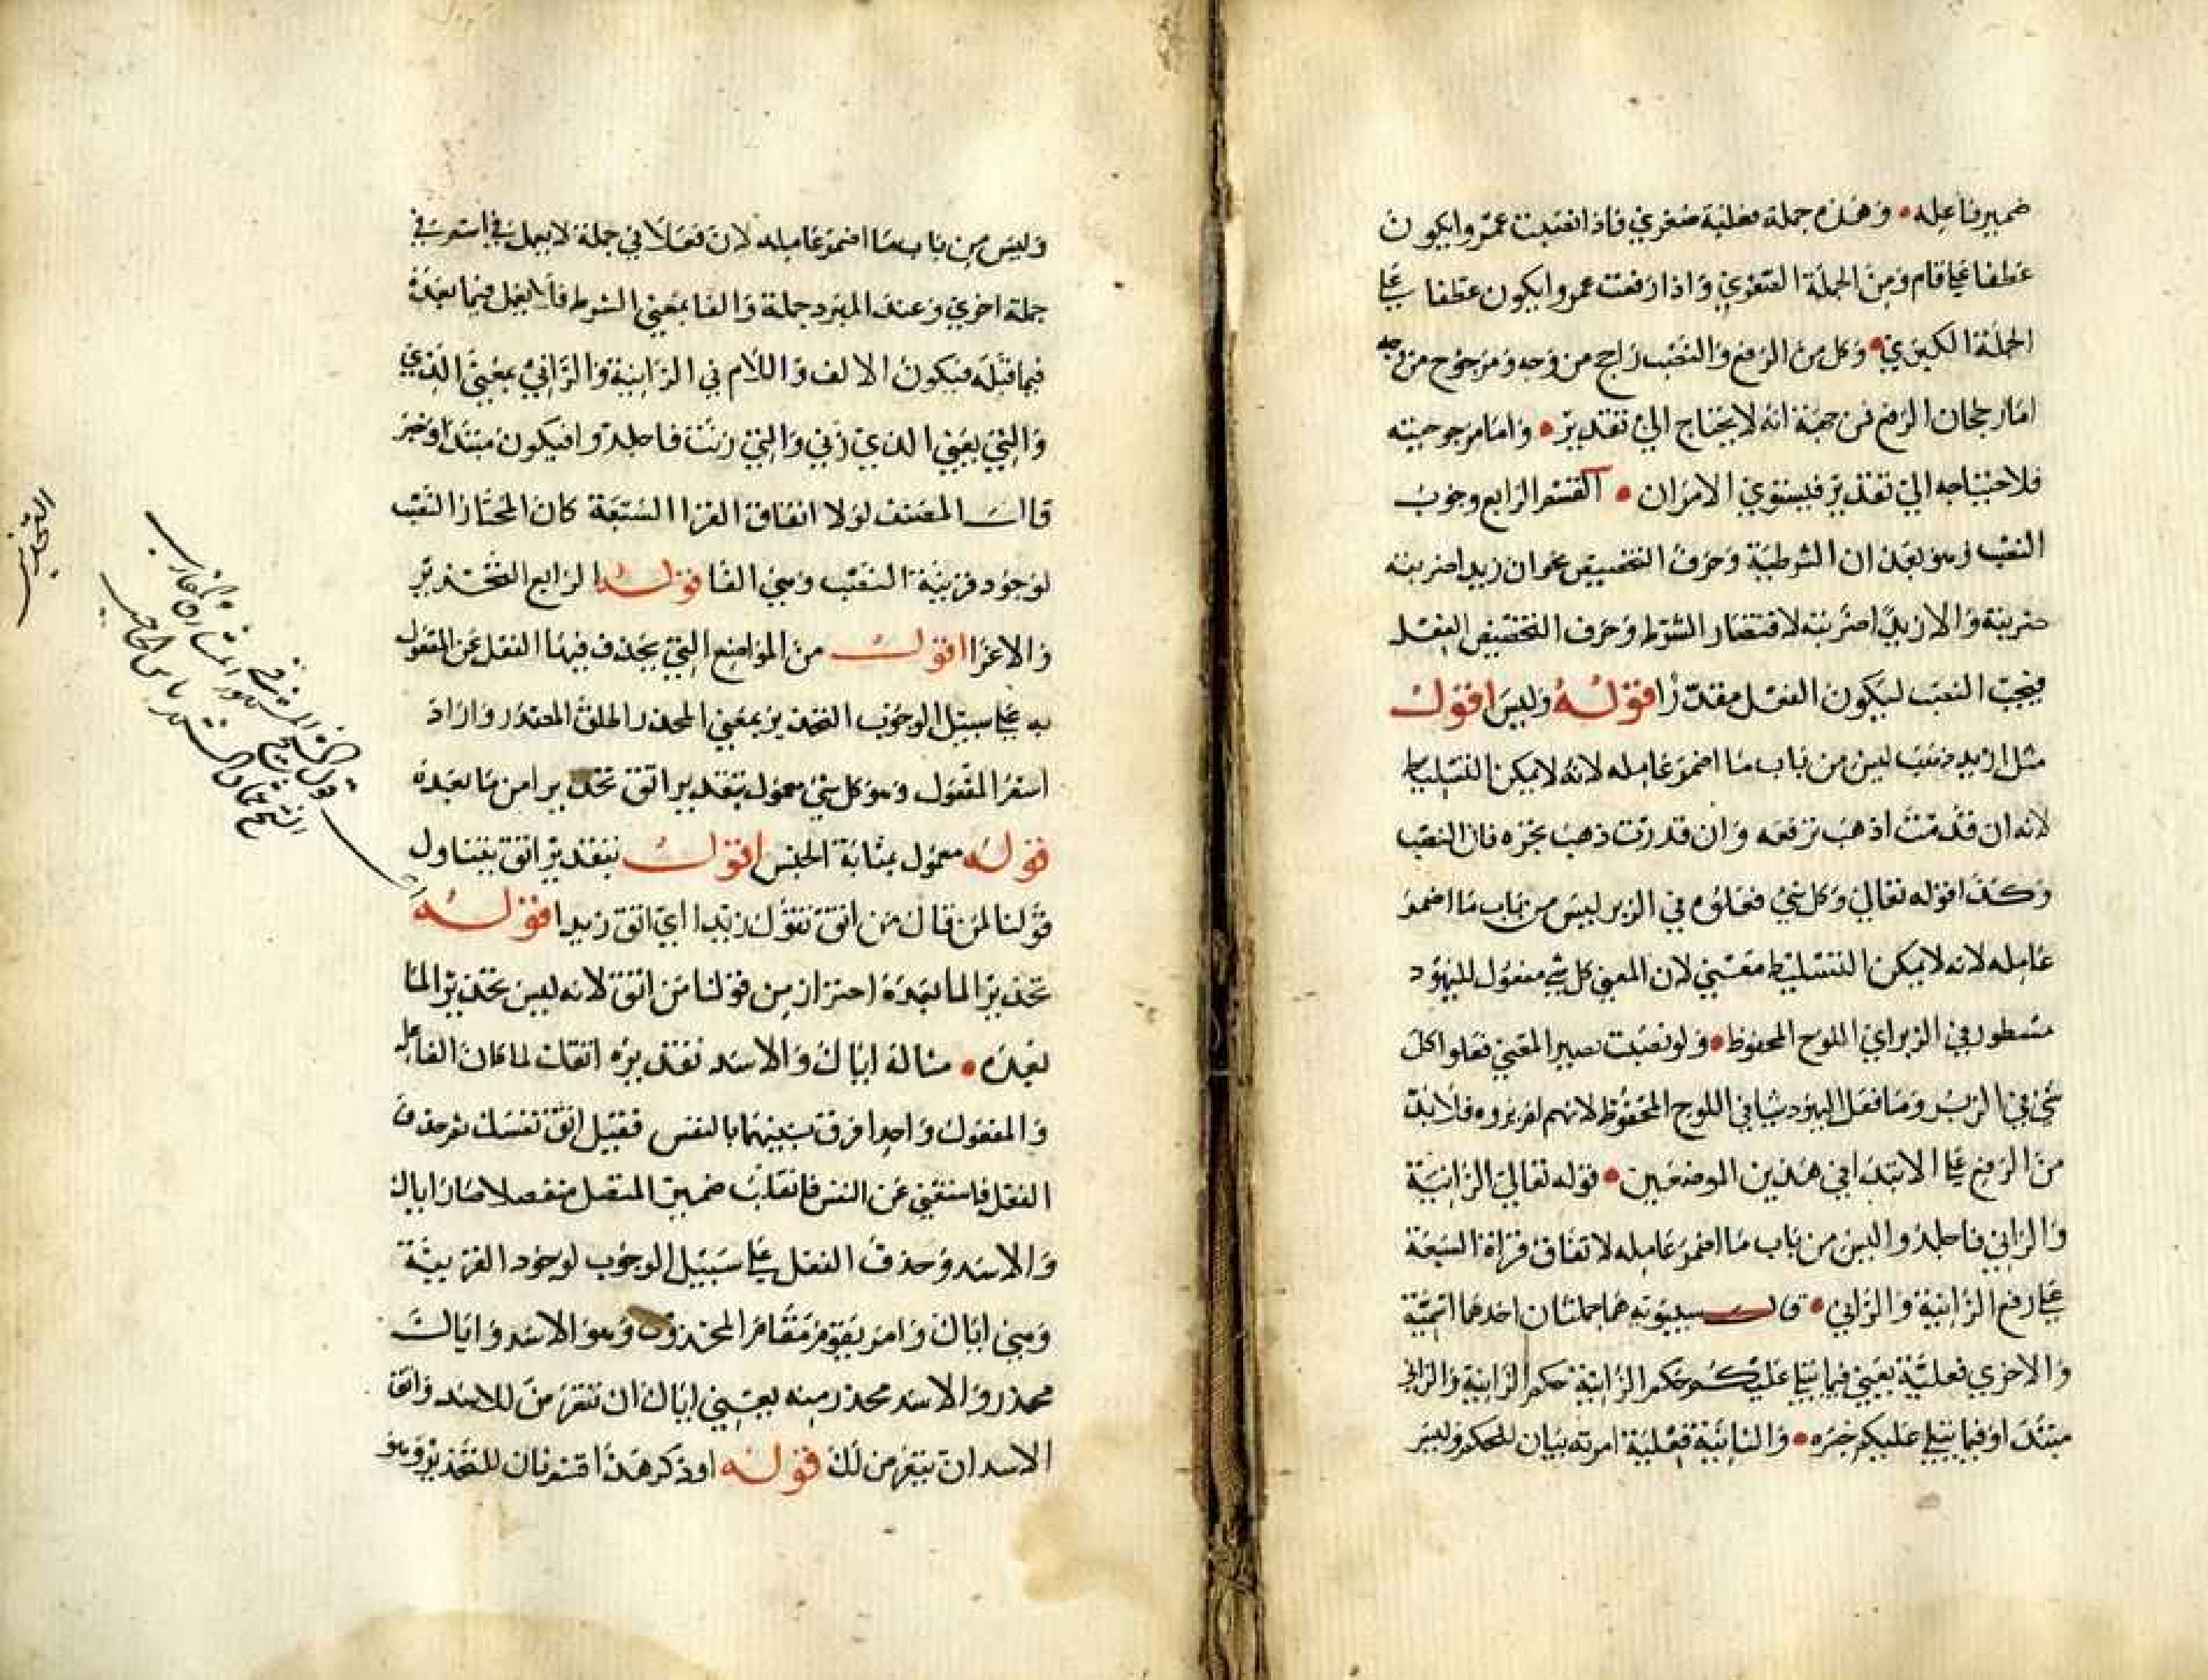 ضمير فاعله • وهذه جملة فعلية صغري فاذا انتصبت عمروا يكون
عطفا علي قام ومن الجملة الصغري واذا رفعت عمروا يكون عطفا علي
الجملة الكبري • وكل من الرفع والنصب راجح من وجه ومرجوح من وجه
اما رجحان الرفع فمن جهة انه لا يحتاج الي تقدير • واما مرجوحيته
فلاحتياجه الي تقدير فيستوي الامران • القسم الرابع وجوب
النصب وهو بعد ان الشرطية وحرف التحضيض نحو ان زيدا ضربته
ضربته والا زيدًا ضربته لاقتضار الشرط وحرف التحضيض الفعل
فيجب النصب ليكون الفعل مقدرا قوله وليس اقول
مثل ازيد ذهب ليس من باب ما اضمر عامله لانه لا يمكن التسليط
لانه ان قدمت اذهب ترفعه وان قدرت ذهب بجره فان النصب
وكذا قوله تعالي وكل شي فعلوه في الزبر ليس من باب ما اضمر
عامله لانه لا يمكن التسليط معني لان المعني كل شي مفعول لليهود
مسطور في الزبر اي اللوح المحفوظ • ولو نصبت يصير المعني فعلوا كل
شي في الزبر وما فعل اليهود شيا في اللوح المحفوظ لانهم لم يزبروه فلا بد
من الرفع علي الابتدا في هذين الموضعين • قوله تعالي الزانية
والزاني فاجلدوا ليس من باب ما اضمر عامله لاتفاق قراة السبعة
علي رفع الزانية والزاني • قال سيبويه هما جملتان احدهما اسمية
والاخري فعلية يعني فيما يتلي عليكم حكم الزانية حكم الزانية والزاني
مبتدا وفيما يتلي عليكم خبره • والثانية فعلية امرته بيان للحكم وليس
وليس من باب ما اضمر عامله لان فعلا في جملة لا يعمل في اسم في
جملة اخري وعند المبرد جملة والفا بمعني الشرط فلا يعمل فيما بعده
فيما قبله فيكون الالف واللام في الزانية والزاني بمعني الذي
والتي يعني الذي زني والتي زنت فاجلدوا فيكون مبتدا وخبر
قال المصنف لولا اتفاق القرا السبعة كان المختار النصب
لوجود قرينة النصب وهي الفا قوله الرابع التحذير
والاغرا اقول من المواضع التي يحذف فيها الفعل عن المفعول
به علي سبيل الوجوب التحذير بمعني المحذر اطلق المصدر واراد
اسم المفعول وهو كل شي معمول بتقدير اتق تحذيرا من ما بعده
قوله معمول بمثابة الجنس اقول بتقدير اتق يتناول
قولنا لمن قال من اتق تقول زيدا اي اتق زيدا قوله
تحذيرا لما بعده احتراز من قولنا من اتق لانه ليس تحذيرا لما
بعده • مثاله اياك والاسد تقديره اتقك لما كان الفاعل
والمفعول واحدا فرق بينهما بالنفس فقيل اتق نفسك ثم حذف
الفعل فاستغني عن النفس فانقلب ضمير المتصل منفصلا صار اياك
والاسد وحذف الفعل علي سبيل الوجوب لوجود القرينة
وهي اياك وامر يقوم مقام المحذوف وهو الاسد واياك
محذر والاسد محذر منه يعني اياك ان تتعرض للاسد واتق
الاسد ان يتعرض لك قوله او ذكر هذا قسم ثان للتحذير وهو